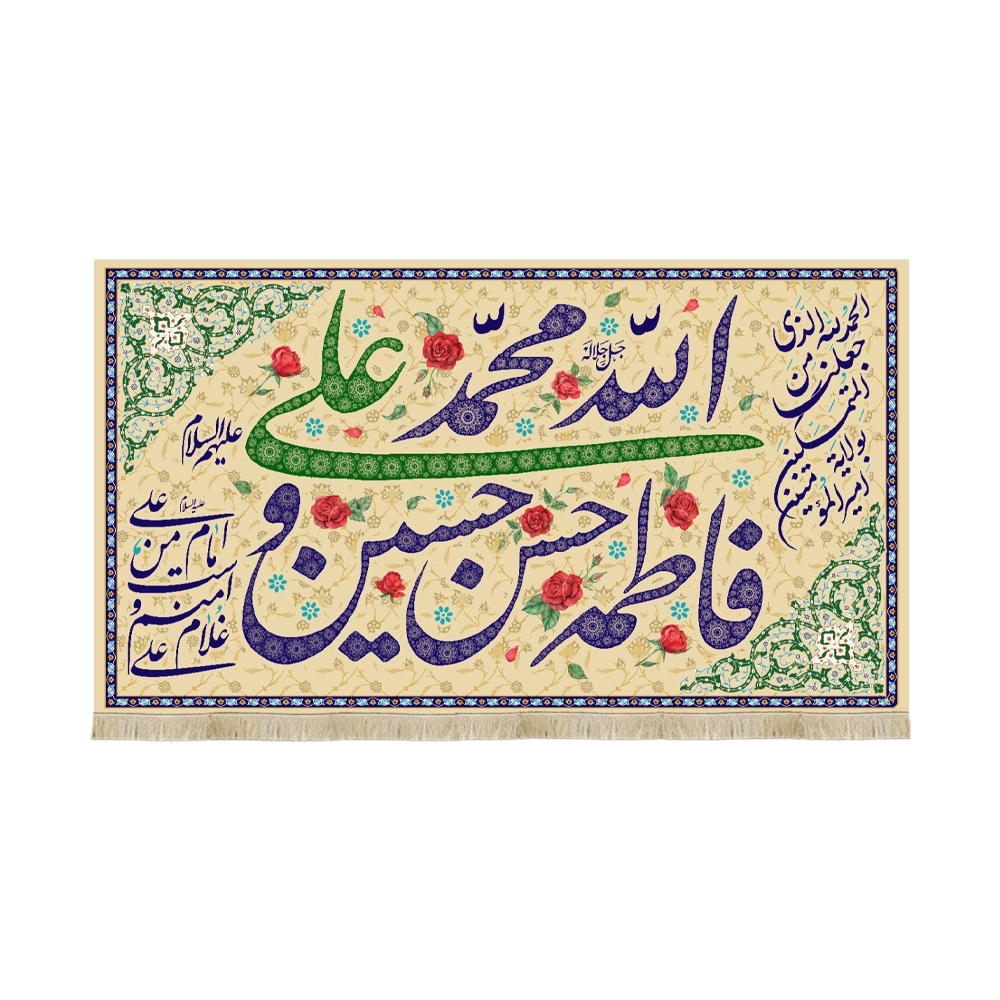 الله جل جلاله محمد علی
فاطمه حسن حسین و
الحمدلله الذی
جعلنا من
المتمسکین
بولایة
امیرالمؤمنین
علیهم السلام
علی علیه السلام
امام من
است
و منم
غلام علی